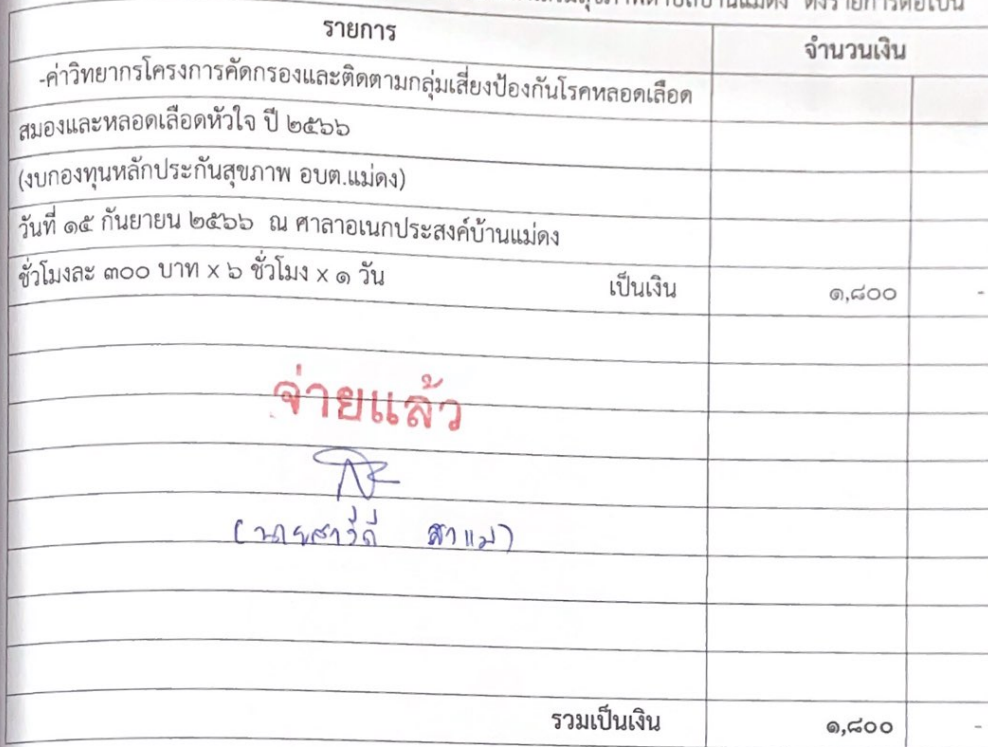 รายการ จำนวนเงิน
-ค่าวิทยากรโครงการคัดกรองและติดตามกลุ่มเสี่ยงป้องกันโรคหลอดเลือด
สมองและหลอดเลือดหัวใจ ปี ๒๕๖๖
(งบกองทุนหลักประกันสุขภาพ อบต.แม่ดง)
วันที่ ๑๕ กันยายน ๒๕๖๖ ณ ศาลาอเนกประสงค์บ้านแม่ดง
ชั่วโมงละ ๓๐๐ บาท x ๖ ชั่วโมง x ๑ วัน เป็นเงิน ๑,๘๐๐ -
จ่ายแล้ว
รวมเป็นเงิน ๑,๘๐๐ -